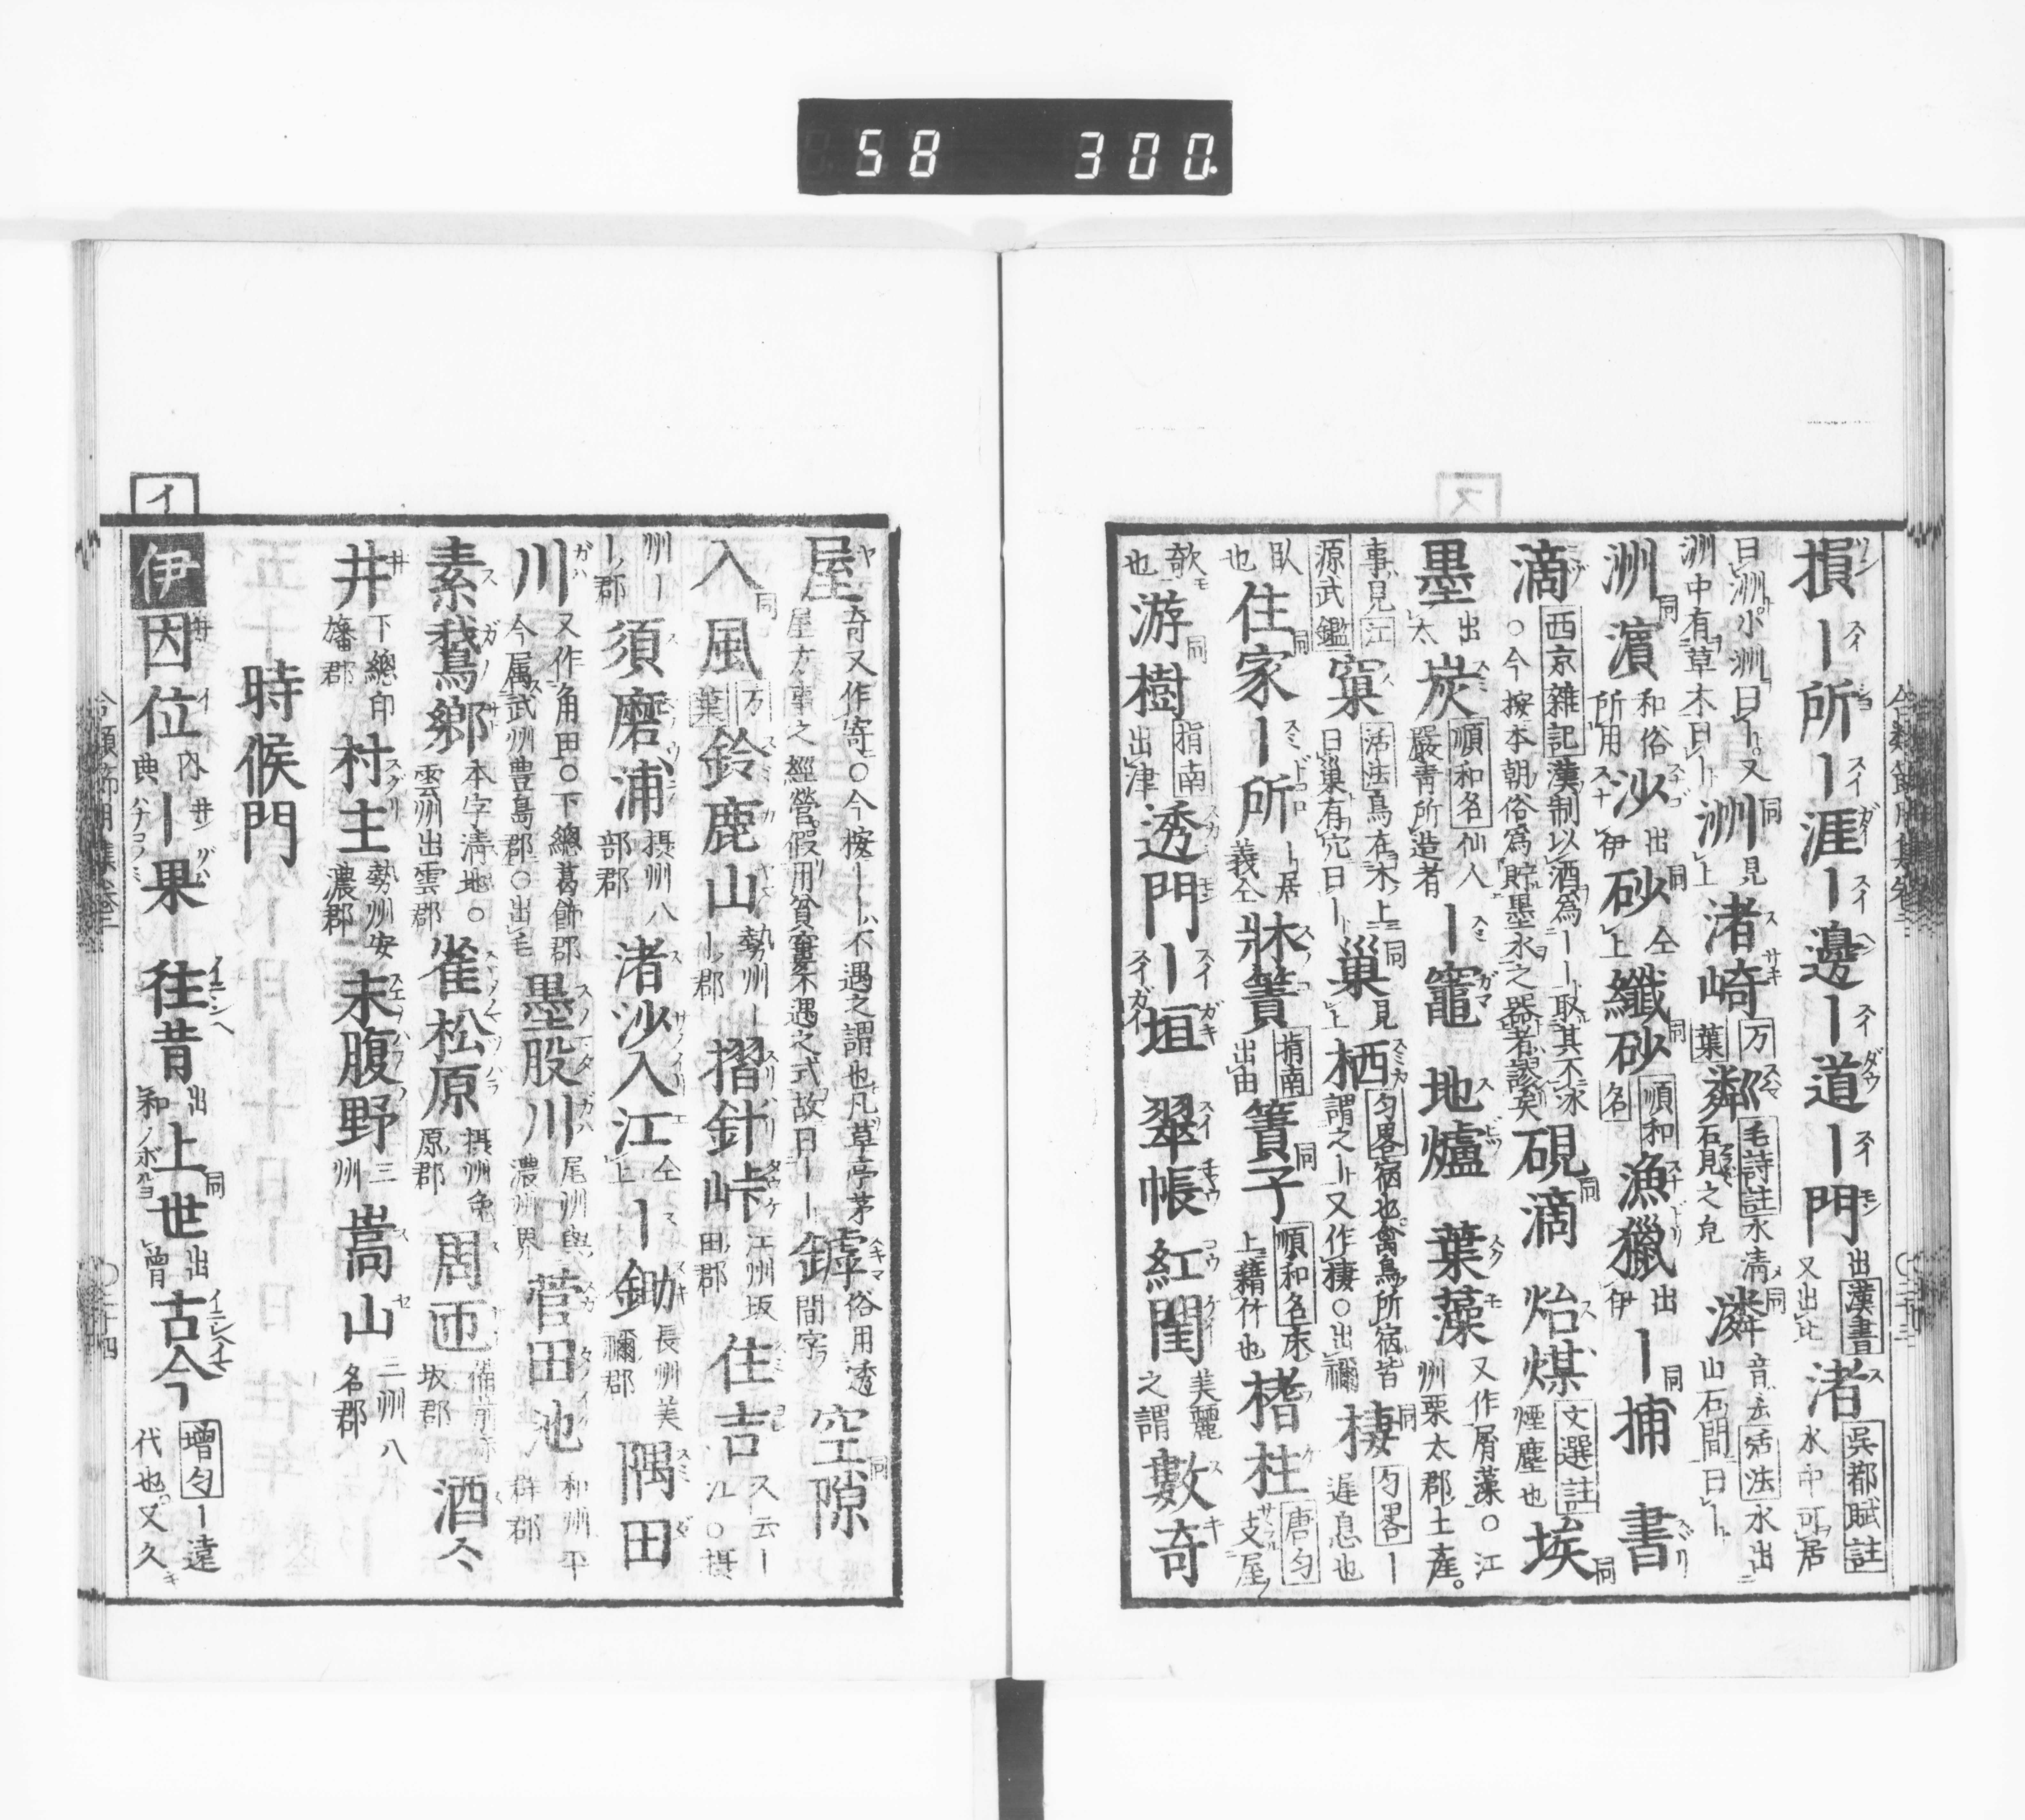 58 300
損ー所ー涯ー邊ー道ー門 出漢書 又出比 渚 呉都賦註 水中可居
曰洲小洲曰ー又 洲中有草木曰ー 洲 同見上 渚崎 万葉 粼 毛詩註 水清石見之皃 潾 同 音云活法水出山石間曰ー
洲濱 同 和俗所用 沙 出伊 砂 同仝上 纖砂 同 順和名 漁獵 出伊 ー捕 同 書
滴 西京雜記 漢制以酒為ーー取其不氷 ○今按本朝俗為貯墨水之器者謬矣 硯滴 同 炲煤 文選註 煙塵也 埃 同
墨 出太 炭 順和名 仙人嚴青所造者 ー竈 地爐 葉藻 又作屑藻○江州栗太郡土産
事見江源武鑑 窠 活法 鳥在木上曰巢有穴曰ー 巢 同見上 栖 匀畧 宿也禽鳥所宿皆謂之ー又作棲○出禰 棲 同 匀畧 ー遲息也
臥也 住家 同 ー所 ー居義仝 牀簀 指南 出由 簀子 同 順和名 床上藉竹也 楮柱 唐匀 支屋
欹也 游樹 同 指南 出津 透門 ー垣 翠帳紅閨 美麗之謂 數奇
屋 奇又作寄○今按ーハ不遇之謂也凡草亭茅屋方事之經營假用貧寠不遇之式故曰ーー 罅 俗用透間字 空隙 同
入風 同 万葉 鈴鹿山 勢州ーー郡 摺針峠 江州坂田郡 住吉 又云ー江○摂
州ーー郡 須磨浦 摂州八部郡 渚沙入江 仝上 ー鋤 長州美禰郡 隅田
川 又作角田○下總葛飾郡今属武州豊島郡○出毛 墨股川 尾洲與濃洲界 菅田池 和州平群郡
素鵞鄉 本字清地○雲州出雲郡 雀松原 摂州兔原郡 周匝 備前赤坂郡 酒々
井 下總印旛郡 村主 勢州安濃郡 末腹野 三州 嵩山 三州八名郡
時候門
イ
伊 因位 內典 ー果 往昔 出和 上世 同出曾 古今 增匀 ー遠代也又久